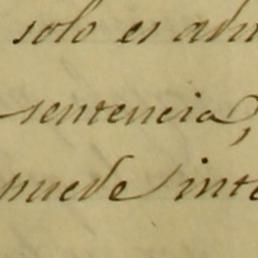 solo es adm
sentencia,
puede inte